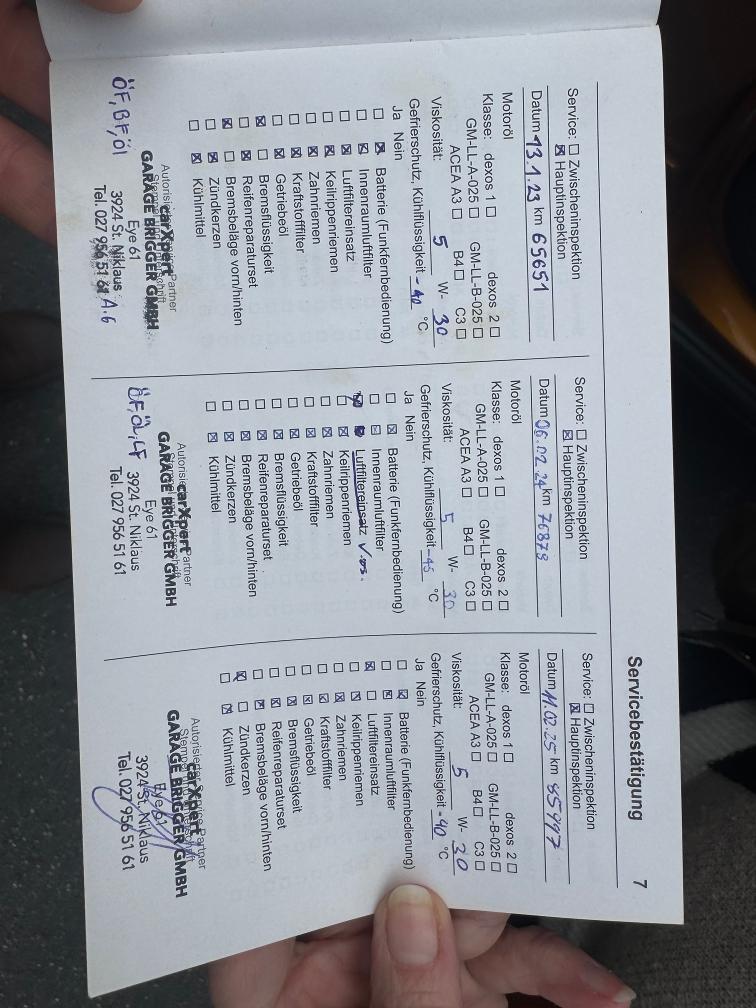 Servicebestätigung 7
Service: ☐ Zwischeninspektion
☒ Hauptinspektion
Datum 13.1.23 km 65651
Motoröl
Klasse: dexos 1 ☐ dexos 2 ☐
GM-LL-A-025 ☐ GM-LL-B-025 ☐
ACEA A3 ☐ B4 ☐ C3 ☐
Viskosität: 5 W- 30
Gefrierschutz, Kühlflüssigkeit -40 °C
Ja Nein
☐ ☒ Batterie (Funkfernbedienung)
☐ ☒ Innenraumluftfilter
☐ ☒ Luftfiltereinsatz
☐ ☒ Keilrippenriemen
☐ ☒ Zahnriemen
☐ ☒ Kraftstofffilter
☐ ☒ Getriebeöl
☒ ☐ Bremsflüssigkeit
☐ ☒ Reifenreparaturset
☒ ☐ Bremsbeläge vorn/hinten
☐ ☒ Zündkerzen
☐ ☒ Kühlmittel
carXpert
GARAGE BRIGGER GMBH
Eye 61
3924 St. Niklaus
Tel. 027 956 51 61
ÖF, BF, Öl
Service: ☐ Zwischeninspektion
☒ Hauptinspektion
Datum 06.02.24 km 76873
Motoröl
Klasse: dexos 1 ☐ dexos 2 ☐
GM-LL-A-025 ☐ GM-LL-B-025 ☐
ACEA A3 ☐ B4 ☐ C3 ☐
Viskosität: 5 W- 30
Gefrierschutz, Kühlflüssigkeit -45 °C
Ja Nein
☐ ☒ Batterie (Funkfernbedienung)
☐ ☒ Innenraumluftfilter
☒ Luftfiltereinsatz
☐ ☒ Keilrippenriemen
☐ ☒ Zahnriemen
☐ ☒ Kraftstofffilter
☐ ☒ Getriebeöl
☐ ☒ Bremsflüssigkeit
☐ ☒ Reifenreparaturset
☐ ☒ Bremsbeläge vorn/hinten
☐ ☒ Zündkerzen
☐ ☒ Kühlmittel
carXpert
GARAGE BRIGGER GMBH
Eye 61
3924 St. Niklaus
Tel. 027 956 51 61
ÖF, Öl, LF
Service: ☐ Zwischeninspektion
☒ Hauptinspektion
Datum 11.02.25 km 85997
Motoröl
Klasse: dexos 1 ☐ dexos 2 ☐
GM-LL-A-025 ☐ GM-LL-B-025 ☐
ACEA A3 ☐ B4 ☐ C3 ☐
Viskosität: 5 W- 30
Gefrierschutz, Kühlflüssigkeit -40 °C
Ja Nein
☐ ☒ Batterie (Funkfernbedienung)
☐ ☒ Innenraumluftfilter
☒ ☐ Luftfiltereinsatz
☐ ☒ Keilrippenriemen
☐ ☒ Zahnriemen
☐ ☒ Kraftstofffilter
☐ ☒ Getriebeöl
☐ ☒ Bremsflüssigkeit
☐ ☒ Reifenreparaturset
☐ ☒ Bremsbeläge vorn/hinten
☒ ☐ Zündkerzen
☐ ☒ Kühlmittel
carXpert
GARAGE BRIGGER GMBH
Eye 61
3924 St. Niklaus
Tel. 027 956 51 61